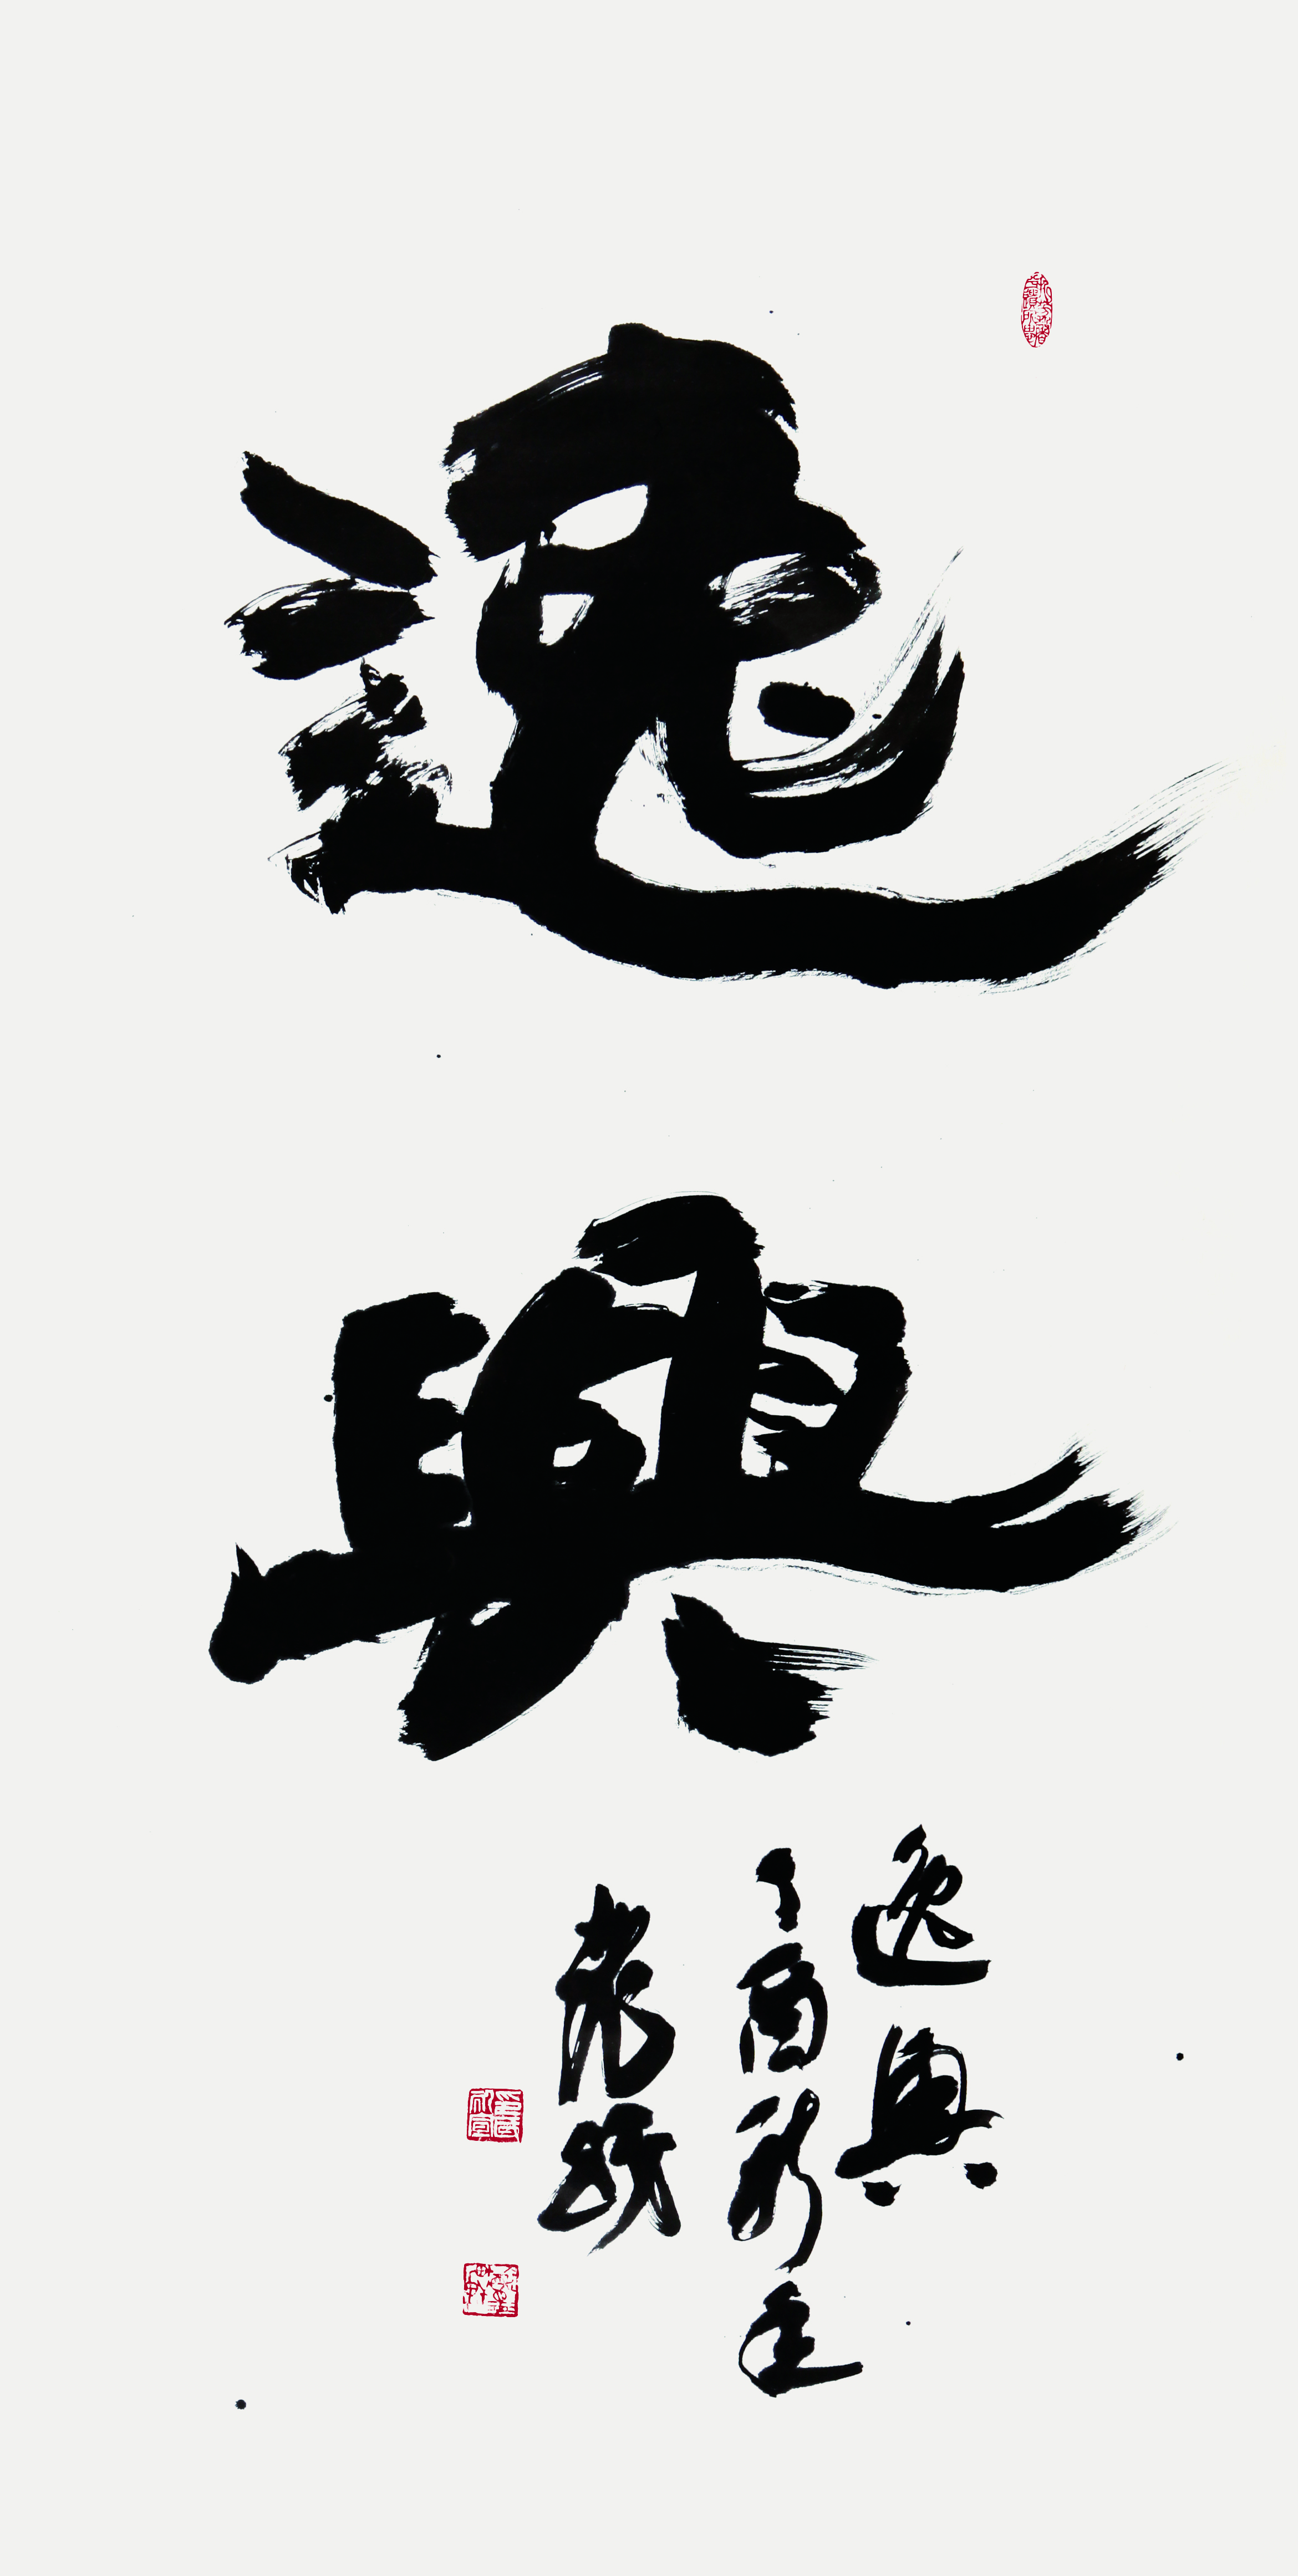 逸興
逸興
丁酉新年